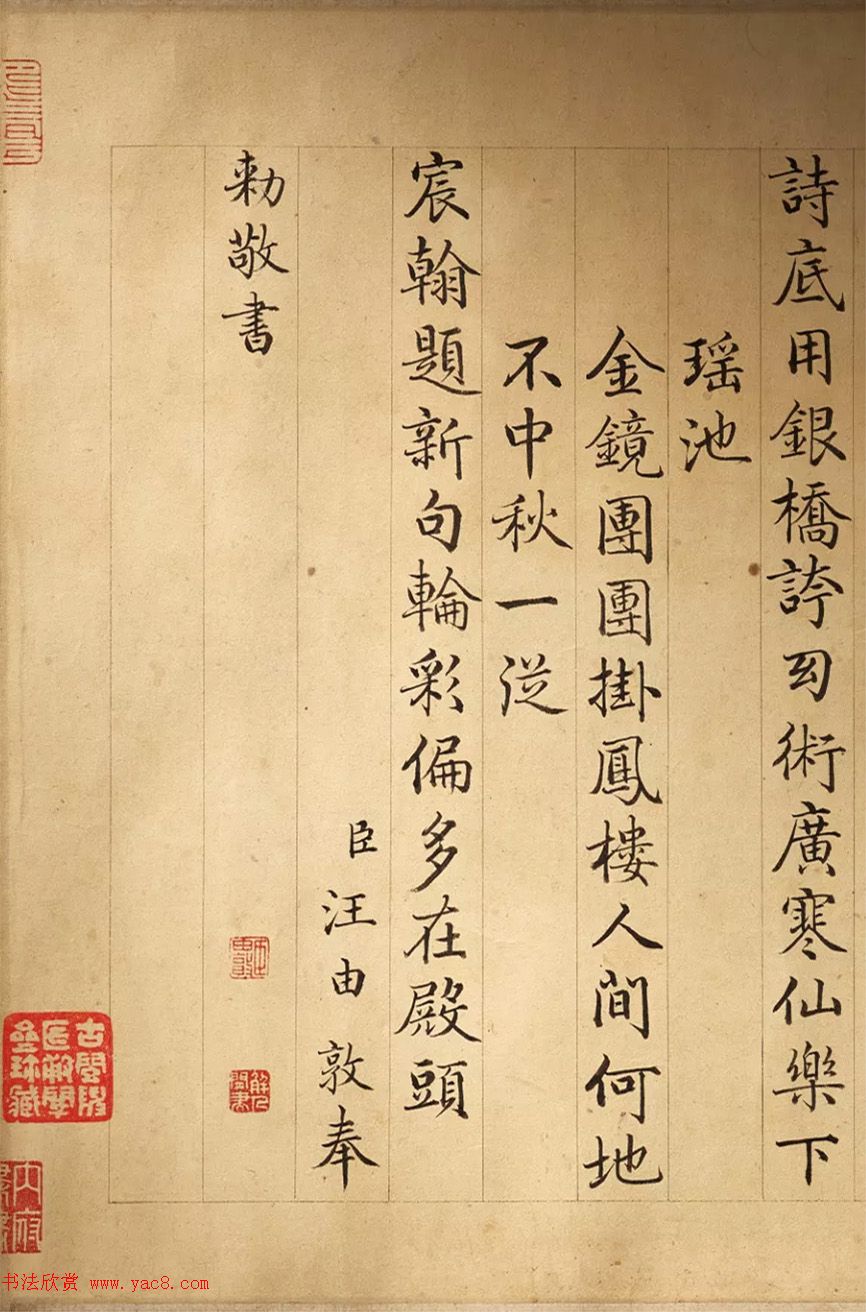 詩底用銀橋誇幻術廣寒仙樂下
瑶池
金鏡團團掛鳳樓人間何地
不中秋一従
宸翰題新句輪彩偏多在殿頭
臣汪由敦奉
勅敬書
书法欣赏 www.yac8.com